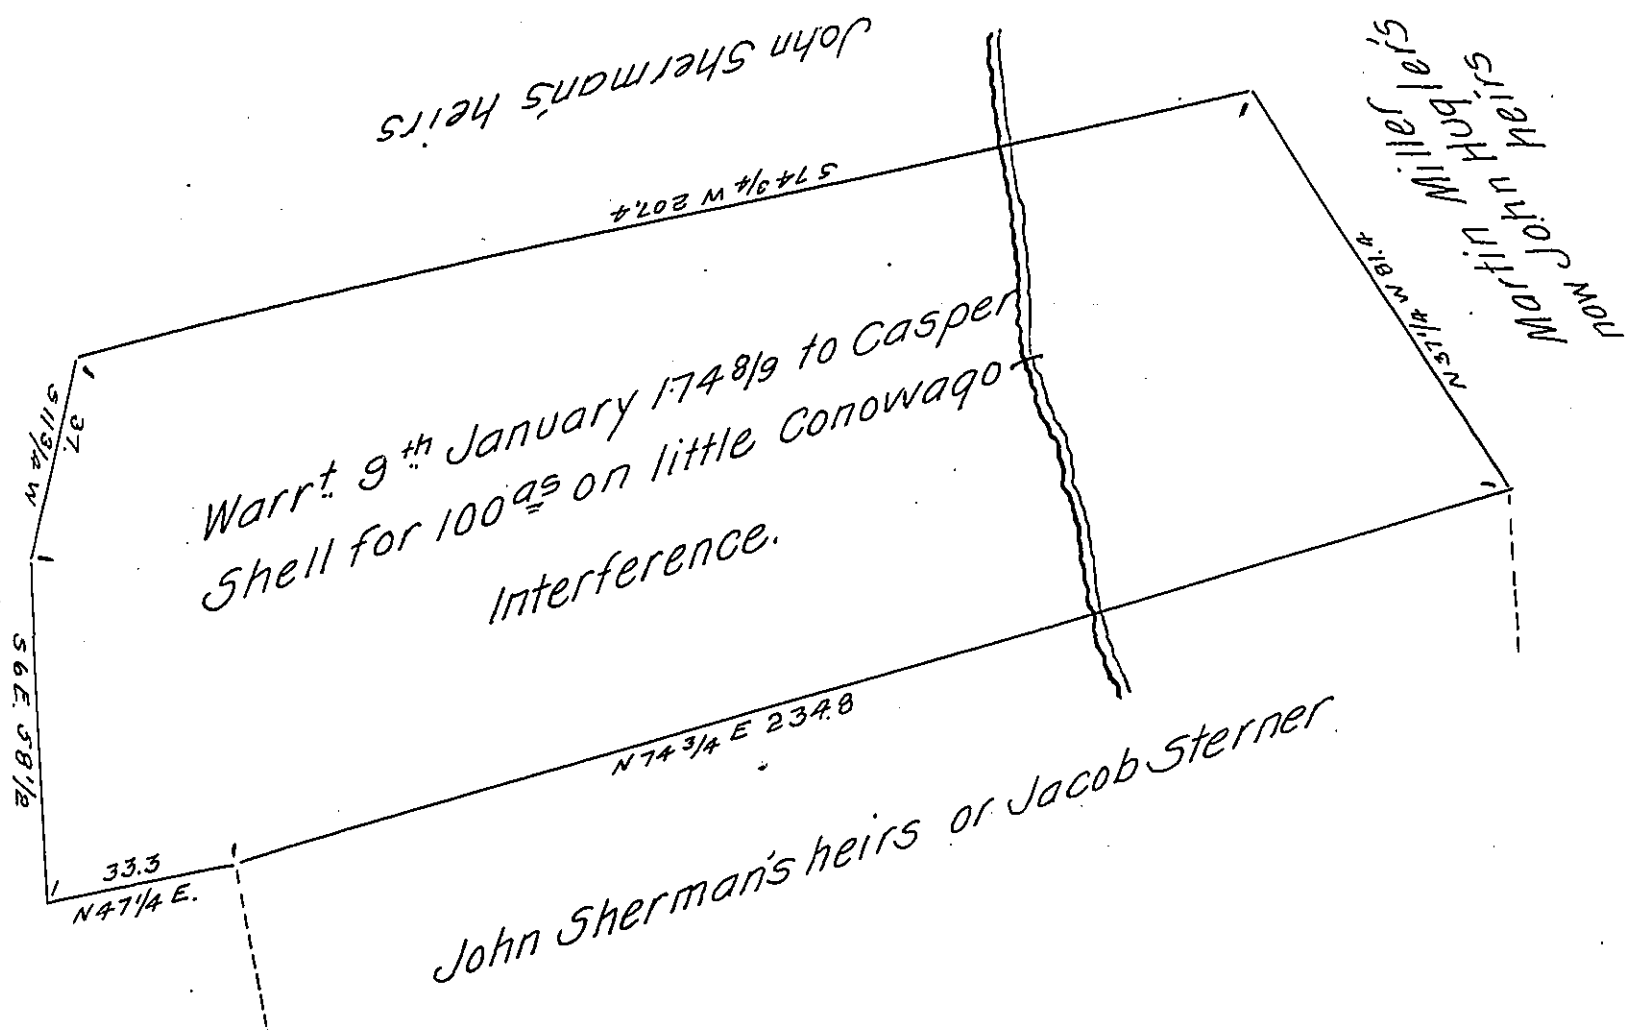 John Sherman's heirs
Martin Miller
now John Hugler's
heirs
S 74 3/4 W 207.4
N 37 1/4 W 81.4
37.
S 11 3/4 W
Warrt. 9th January 1748/9 to Casper
Shell for 100as on little Conowago
Interference.
S 6 E. 58 1/2
N 74 3/4 E 234.8
33.3
N 47 1/4 E.
John Sherman's heirs or Jacob Sterner